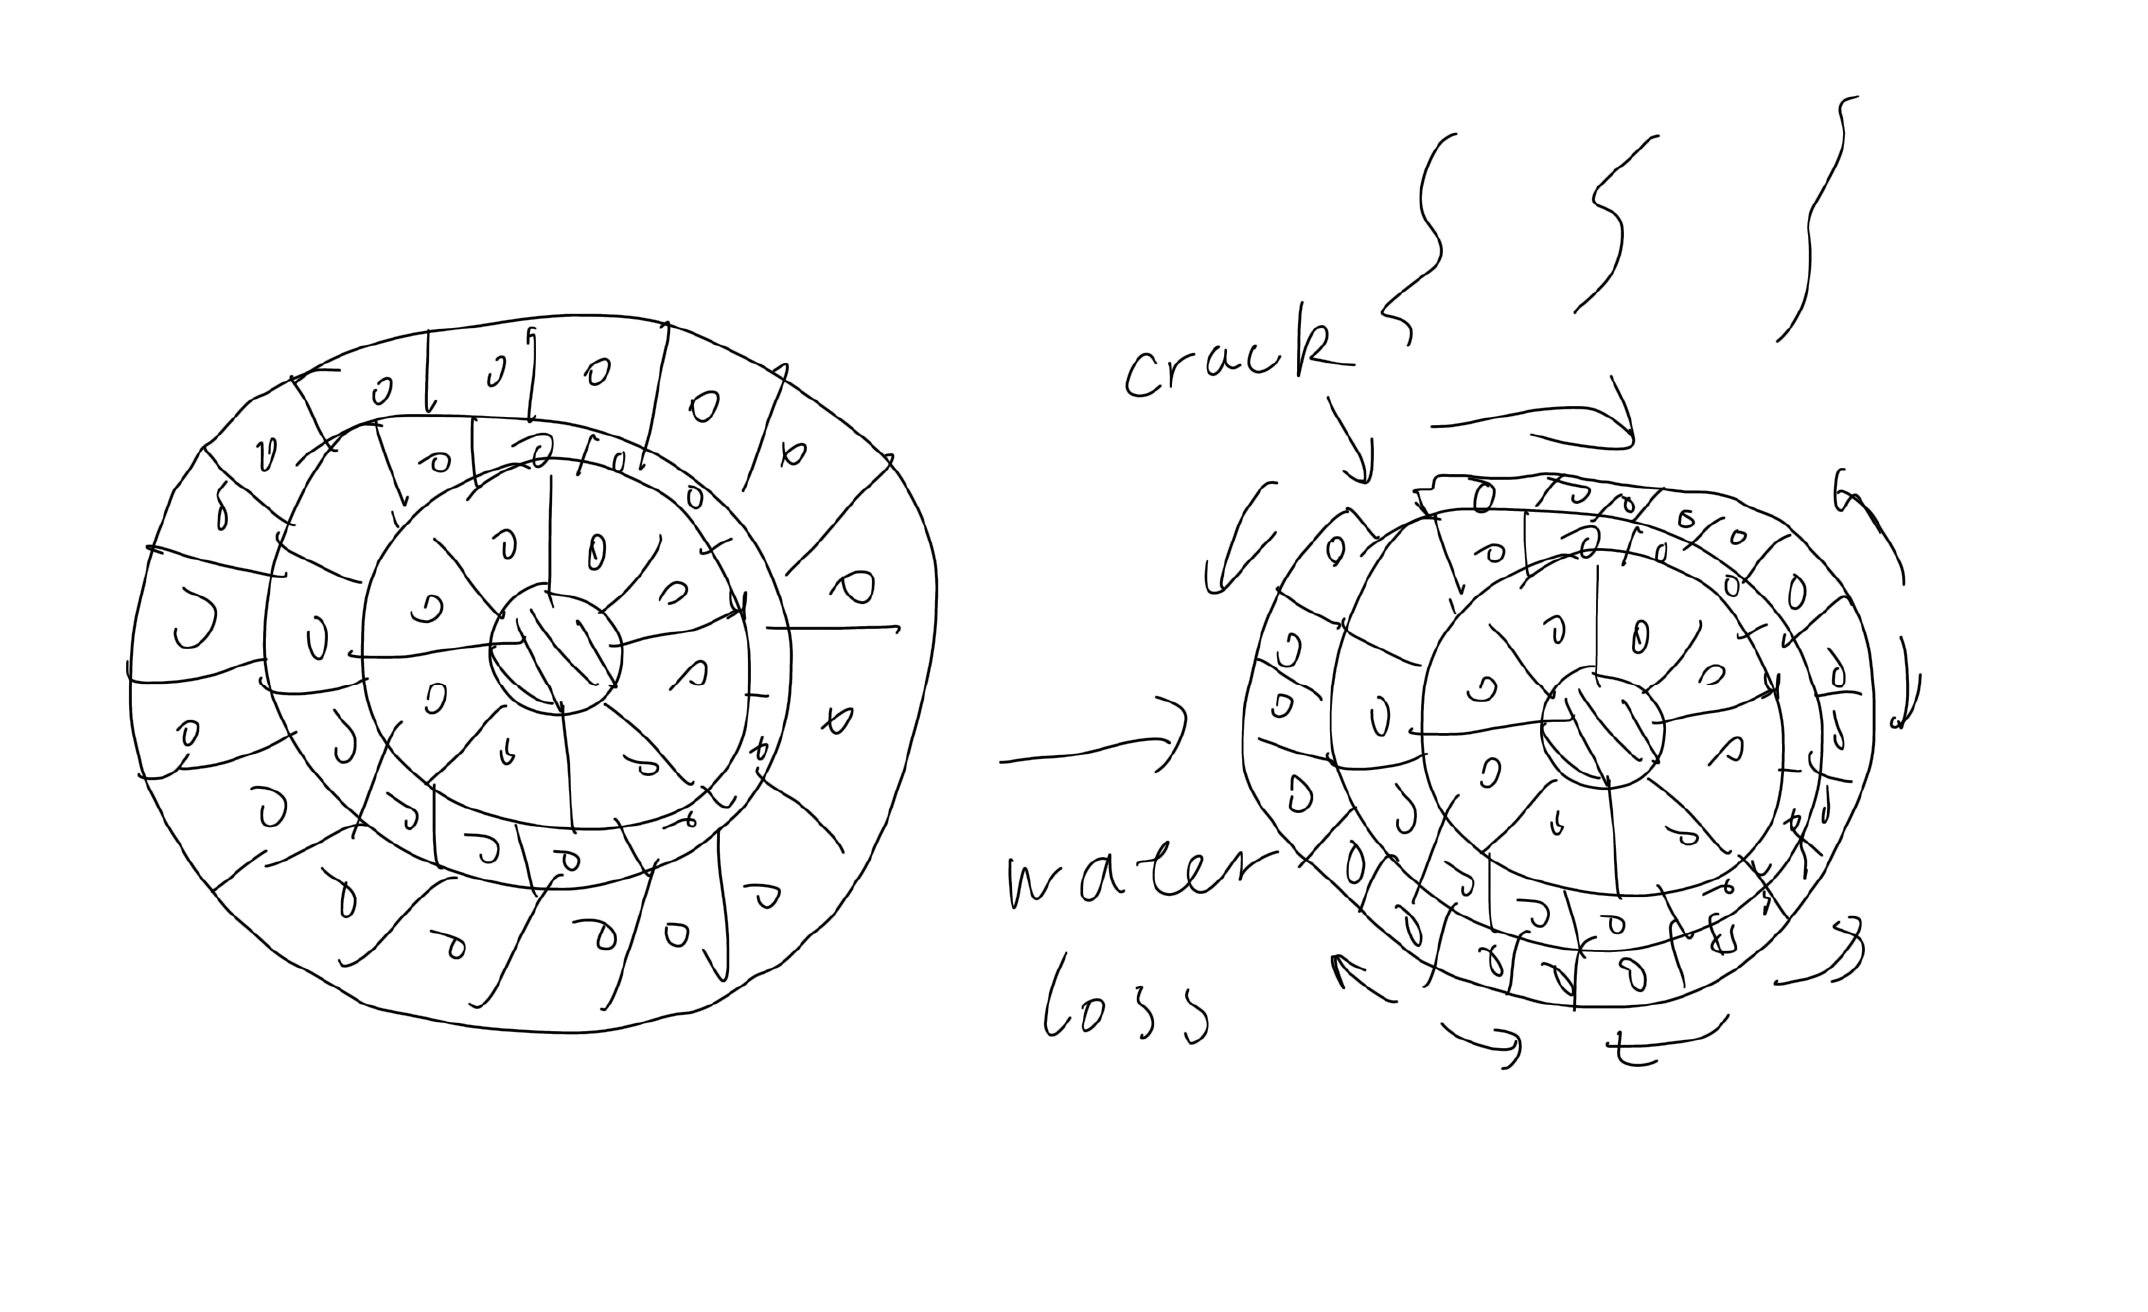 crack
water
loss